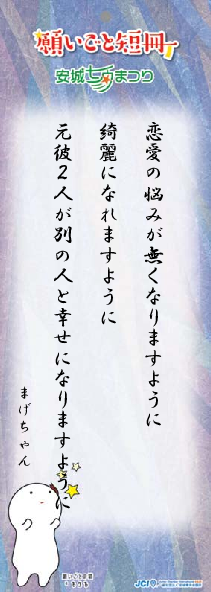 願いごと短冊
安城七夕まつり
恋愛の悩みが無くなりますように
綺麗になれますように
元彼2人が別の人と幸せになりますように
まげちゃん
願いごと短冊
JCI